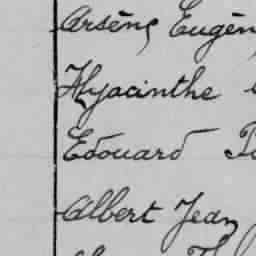 Arsène Eugèn
Hyacinthe
Edouard
Albert Jean